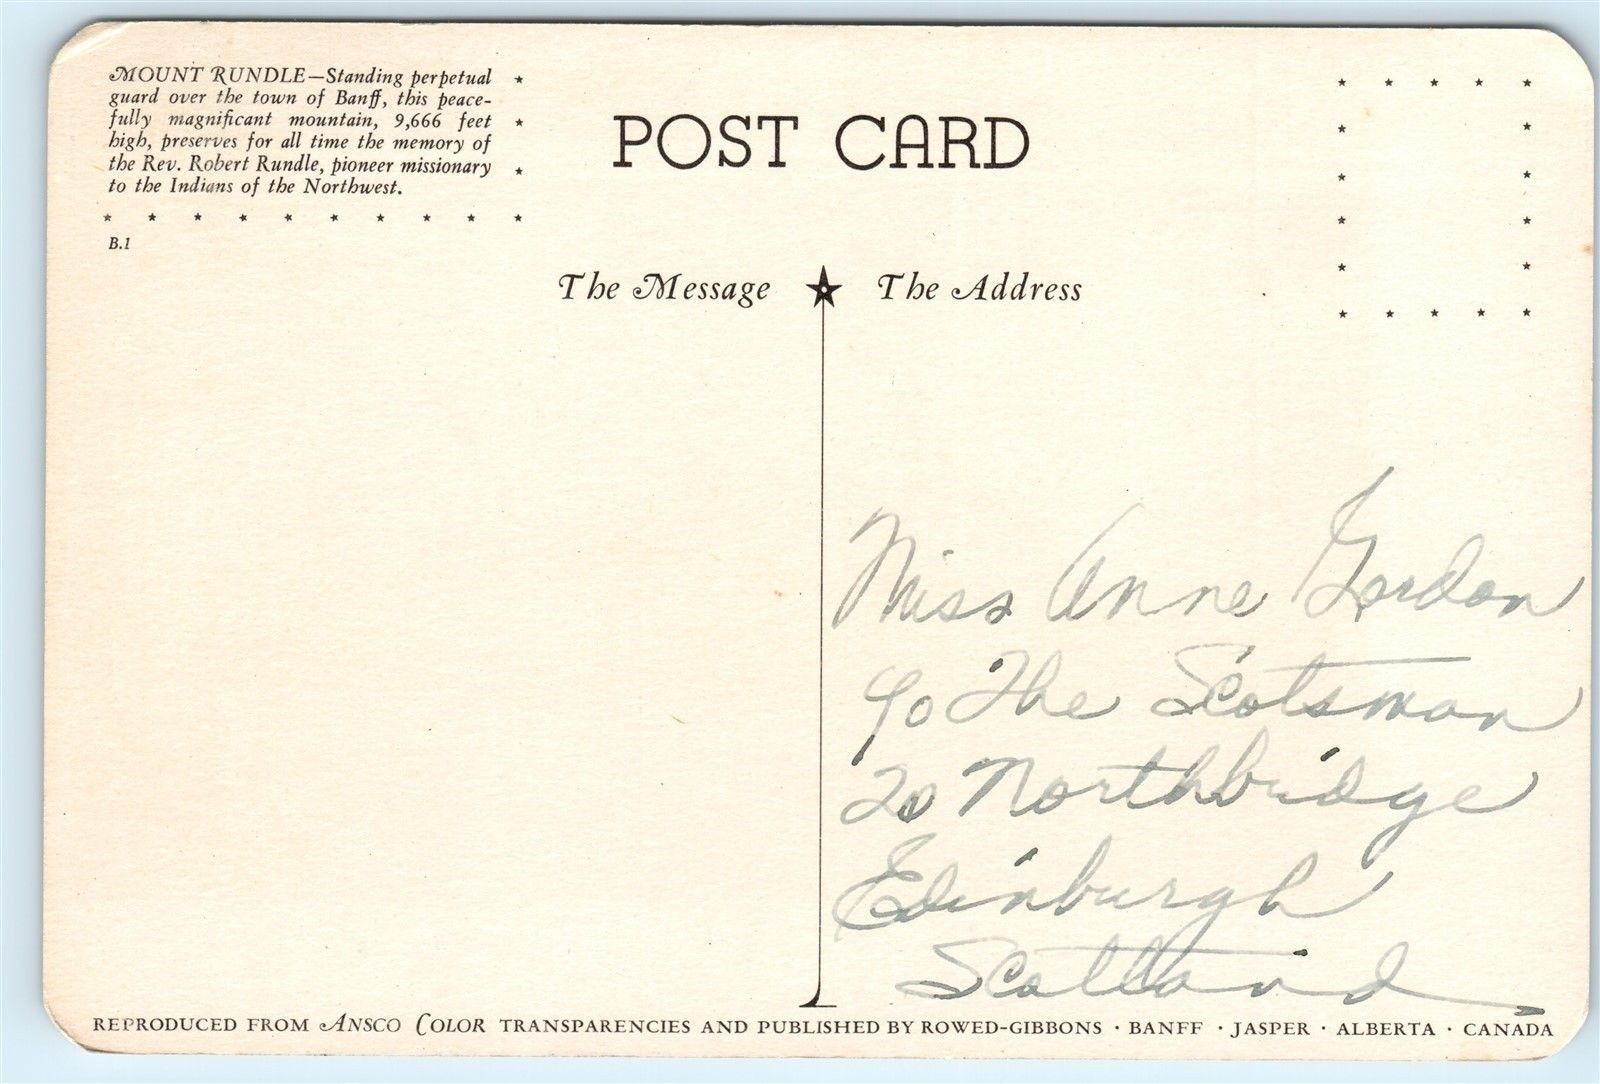 MOUNT RUNDLE—Standing perpetual
guard over the town of Banff, this peace-
fully magnificant mountain, 9,666 feet
high, preserves for all time the memory of
the Rev. Robert Rundle, pioneer missionary
to the Indians of the Northwest.
B.1
POST CARD
The Message
The Address
Miss Anne Gordon
c/o The Scotsman
20 Northbridge
Edinburgh
Scotland
REPRODUCED FROM ANSCO COLOR TRANSPARENCIES AND PUBLISHED BY ROWED-GIBBONS · BANFF · JASPER · ALBERTA · CANADA